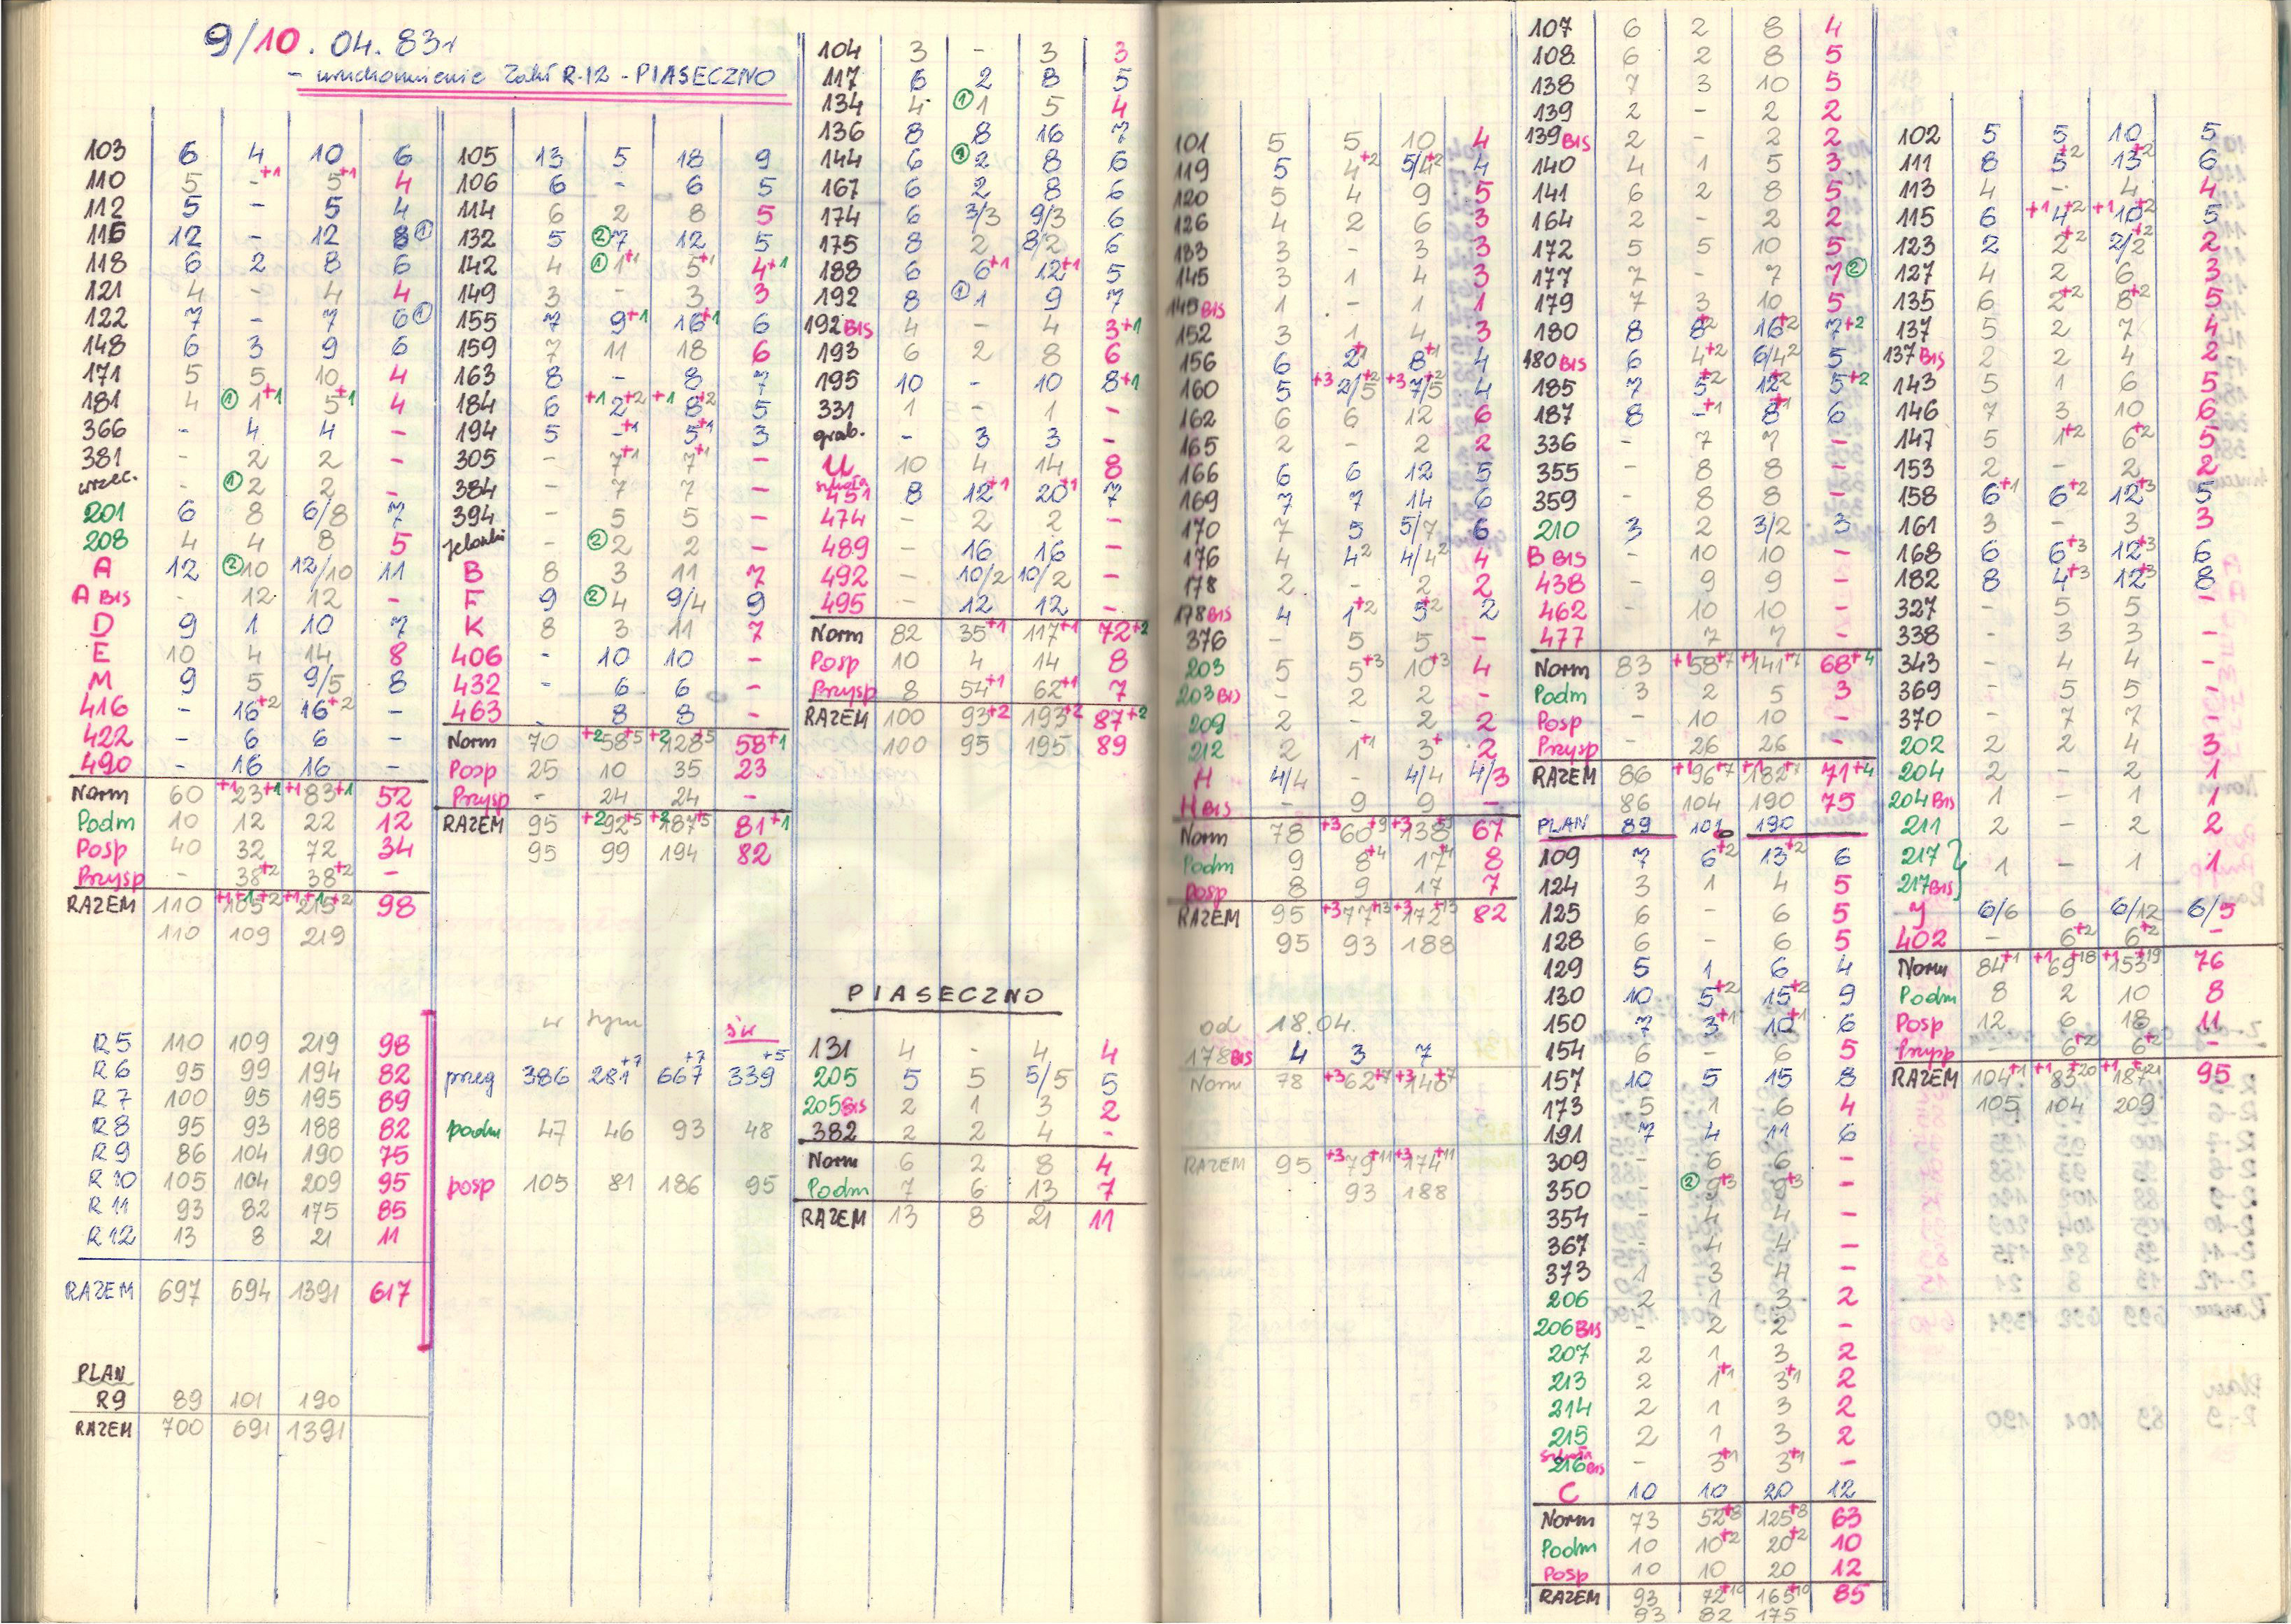 9/10. 04. 83r
- uruchomienie Zakł R-12 - PIASECZNO
103 6 4 10 6
110 5 -+1 5+1 4
112 5 - 5 4
116 12 - 12 8 ①
118 6 2 8 6
121 4 - 4 4
122 7 - 7 6 ①
148 6 3 9 6
171 5 5 10 4
181 4 ① 1+1 5+1 4
366 - 4 4 -
381 - 2 2 -
wrzec. - ① 2 2 -
201 6 8 6/8 7
208 4 4 8 5
A 12 ② 10 12/10 11
A BIS - 12 12 -
D 9 1 10 7
E 10 4 14 8
M 9 5 9/5 8
416 - 16+2 16+2 -
422 - 6 6 -
490 - 16 16 -
Norm 60 +1 23+1 +1 83+1 52
Podm 10 12 22 12
Posp 40 32 72 34
Przysp - 38+2 38+2 -
RAZEM 110 +1+1 105+2 +1+1 215+2 98
110 109 219
R5 110 109 219 98
R6 95 99 194 82
R7 100 95 195 89
R8 95 93 188 82
R9 86 104 190 75
R10 105 104 209 95
R11 93 82 175 85
R12 13 8 21 11
RAZEM 697 694 1391 617
PLAN
R9 89 101 190
RAZEM 700 691 1391
105 13 5 18 9
106 6 - 6 5
114 6 2 8 5
132 5 ② 7 12 5
142 4 ① 1+1 5+1 4+1
149 3 - 3 3
155 7 9+1 16+1 6
159 7 11 18 6
163 8 - 8 7
184 6 +1 2+2 +1 8+2 5
194 5 -+1 5+1 3
305 - 7+1 7+1 -
384 - 7 7 -
394 - 5 5 -
Jelonki ② 2 2 -
B 8 3 11 7
F 9 ② 4 9/4 9
K 8 3 11 7
406 - 10 10 -
432 - 6 6 -
463 - 8 8 -
Norm 70 +2 58+5 +2 128+5 58+1
Posp 25 10 35 23
Przysp - 24 24 -
RAZEM 95 +2 92+5 +2 187+5 81+1
95 99 194 82
w tym św
przeg 386 281+7 667+7 339+5
podm 47 46 93 48
posp 105 81 186 95
104 3 - 3 3
117 6 2 8 5
134 4 ① 1 5 4
136 8 8 16 7
144 6 ① 2 8 6
167 6 2 8 6
174 6 3/3 9/3 6
175 8 2 8/2 6
188 6 6+1 12+1 5
192 8 ① 1 9 7
192 BIS 4 - 4 3+1
193 6 2 8 6
195 10 - 10 8+1
331 1 - 1 -
grab. - 3 3 -
U 10 4 14 8
szkoła
451 8 12+1 20+1 7
474 - 2 2 -
489 - 16 16 -
492 - 10/2 10/2 -
495 - 12 12 -
Norm 82 35+1 117+1 72+2
Posp 10 4 14 8
Przysp 8 54+1 62+1 7
RAZEM 100 93+2 193+2 87+2
100 95 195 89
PIASECZNO
131 4 - 4 4
205 5 5 5/5 5
205 BIS 2 1 3 2
382 2 2 4 -
Norm 6 2 8 4
Podm 7 6 13 7
RAZEM 13 8 21 11
101 5 5 10 4
119 5 4+2 5/4+2 4
120 5 4 9 5
126 4 2 6 3
133 3 - 3 3
145 3 1 4 3
145 BIS 1 - 1 1
152 3 1 4 3
156 6 2+1 8+1 4
160 5 +3 2/5+2 +3 7/5+2 4
162 6 6 12 6
165 2 - 2 2
166 6 6 12 5
169 7 7 14 6
170 7 5 5/7 6
176 4 4 2 4/4 2 4
178 2 - 2 2
178 BIS 4 1+2 5+2 2
376 - 5 5 -
203 5 5+3 10+3 4
203 BIS - 2 2 -
209 2 - 2 2
212 2 1+1 3+ 2
H 4/4 - 4/4 4/3
H BIS - 9 9 -
Norm 78 +3 60+9 +3 138+9 67
Podm 9 8+4 17+4 8
Posp 8 9 17 7
RAZEM 95 +3 77+13 +3 172+13 82
95 93 188
od 18.04.
178 BIS 4 3 7
Norm 78 +3 62+7 +3 140+7
RAZEM 95 +3 79+11 +3 174+11
93 188
107 6 2 8 4
108 6 2 8 5
138 7 3 10 5
139 2 - 2 2
139 BIS 2 - 2 2
140 4 1 5 3
141 6 2 8 5
164 2 - 2 2
172 5 5 10 5
177 7 - 7 7 ②
179 7 3 10 5
180 8 8+2 16+2 7+2
180 BIS 6 4+2 6/4 2 5
185 7 5+2 12+2 5+2
187 8 -+1 8+1 6
336 - 7 7 -
355 - 8 8 -
359 - 8 8 -
210 3 2 3/2 3
B BIS - 10 10 -
438 - 9 9 -
462 - 10 10 -
477 - 7 7 -
Norm 83 +1 58+7 +1 141+7 68+4
Podm 3 2 5 3
Posp - 10 10 -
Przysp - 26 26 -
RAZEM 86 +1 96+7 +1 182+7 71+4
86 104 190 75
PLAN 89 101 190
109 7 6+2 13+2 6
124 3 1 4 5
125 6 - 6 5
128 6 - 6 5
129 5 1 6 4
130 10 5+2 15+2 9
150 7 3+1 10+1 6
154 6 - 6 5
157 10 5 15 8
173 5 1 6 4
191 7 4 11 6
309 - 6 6 -
350 - ② 9+3 9+3 -
354 - 4 4 -
367 - 4 4 -
373 1 3 4 -
206 2 1 3 2
206 BIS - 2 2 -
207 2 1 3 2
213 2 1+1 3+1 2
214 2 1 3 2
215 2 1 3 2
szkoła
216 BIS - 3+1 3+1 -
C 10 10 20 12
Norm 73 52+8 125+8 63
Podm 10 10+2 20+2 10
Posp 10 10 20 12
RAZEM 93 72+10 165+10 85
93 82 175
102 5 5 10 5
111 8 5+2 13+2 6
113 4 - 4 4
115 6 +1 4+2 +1 10+2 5
123 2 2+2 2/2+2 2
127 4 2 6 3
135 6 2+2 8+2 5
137 5 2 7 4
137 BIS 2 2 4 2
143 5 1 6 5
146 7 3 10 6
147 5 1+2 6+2 5
153 2 - 2 2
158 6+1 6+2 12+3 5
161 3 - 3 3
168 6 6+3 12+3 6
182 8 4+3 12+3 8
327 - 5 5 -
338 - 3 3 -
343 - 4 4 -
369 - 5 5 -
370 - 7 7 -
202 2 2 4 3
204 2 - 2 1
204 BIS 1 - 1 1
211 2 - 2 2
217 }
217 BIS } 1 - 1 1
J 6/6 6 6/12 6/5
402 - 6+2 6+2 -
Norm 84+1 +1 69+18 +1 153+19 76
Podm 8 2 10 8
Posp 12 6 18 11
Przysp - 6+2 6+2 -
RAZEM 104+1 +1 83+20 +1 187+21 95
105 104 209